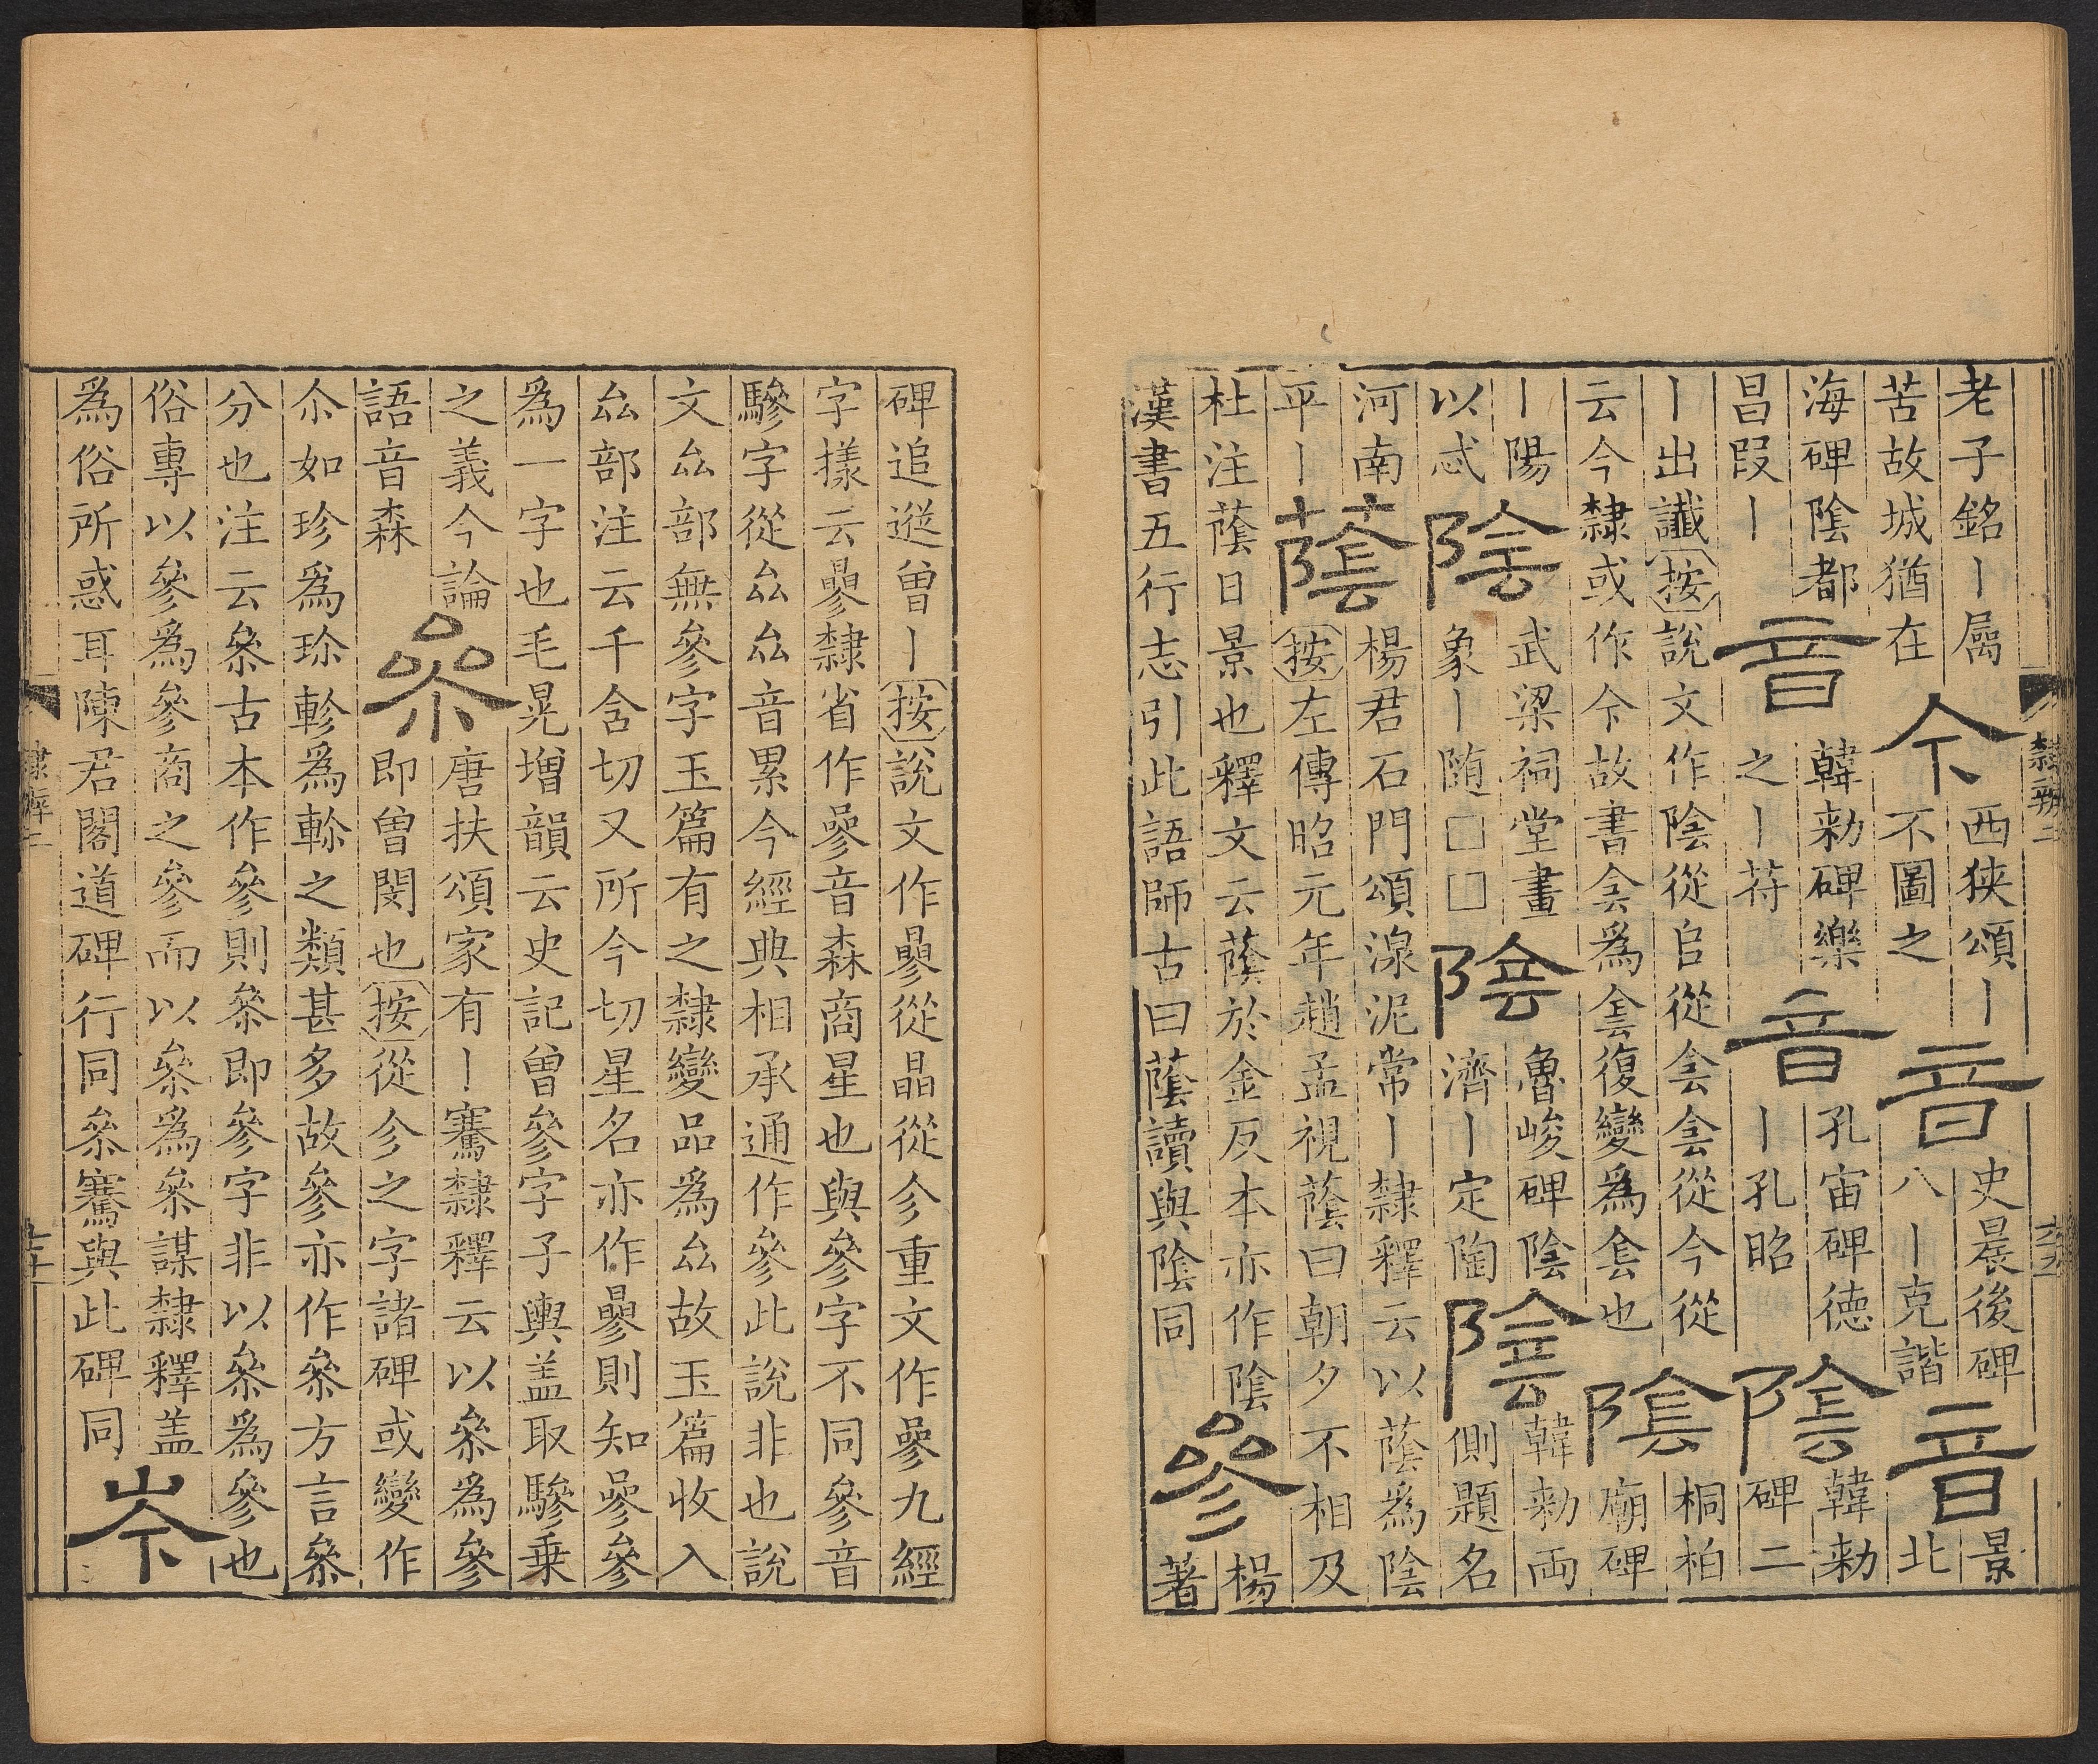 老子銘丨屬
苦故城猶在
今
西狹頌丨
不圖之
音
史晨後碑
八丨克諧
音
景
北
海碑陰都
昌叚丨
音
韓勑碑樂
之丨苻
音
孔宙碑德
丨孔昭
陰
韓勑
碑二
丨出讖按說文作陰從𨸏從侌侌從今從
云今隸或作𫝆故書侌爲侌復變爲套也
陰
桐柏
廟碑
丨陽
以忒
陰
武梁祠堂畫
象丨随□□
陰
魯峻碑陰
濟丨定陶
陰
韓勑両
側題名
河南
平丨
蔭
楊君石門頌湶泥常丨隸釋云以蔭爲陰
按左傳昭元年趙孟視蔭曰朝夕不相及
杜注蔭日景也釋文云蔭於金反本亦作陰
漢書五行志引此語師古曰蔭讀與陰同
參
楊
著
隸辨二
六九
碑追遂曾丨按說文作曑從晶從㐱重文作參九經
字㨾云曑隸省作參音森商星也與參字不同參音
驂字從厽厽音累今經典相承通作參此說非也說
文厽部無參字玉篇有之隸變品爲厽故玉篇收入
厽部注云千含切又所今切星名亦作曑則知參參
爲一字也毛晃增韻云史記曾參字子輿盖取驂乗
之義今論
語音森
叅
唐扶頌家有丨騫隸釋云以叅爲參
即曾閔也按從㐱之字諸碑或變作
尒如珍爲珎軫爲軫之類甚多故參亦作叅方言叅
分也注云叅古本作參則叅即參字非以叅爲參也
俗專以參爲參商之參而以叅爲叅謀隸釋盖
爲俗所惑耳陳君閣道碑行同叅騫與此碑同
岑
隸辨二
七十